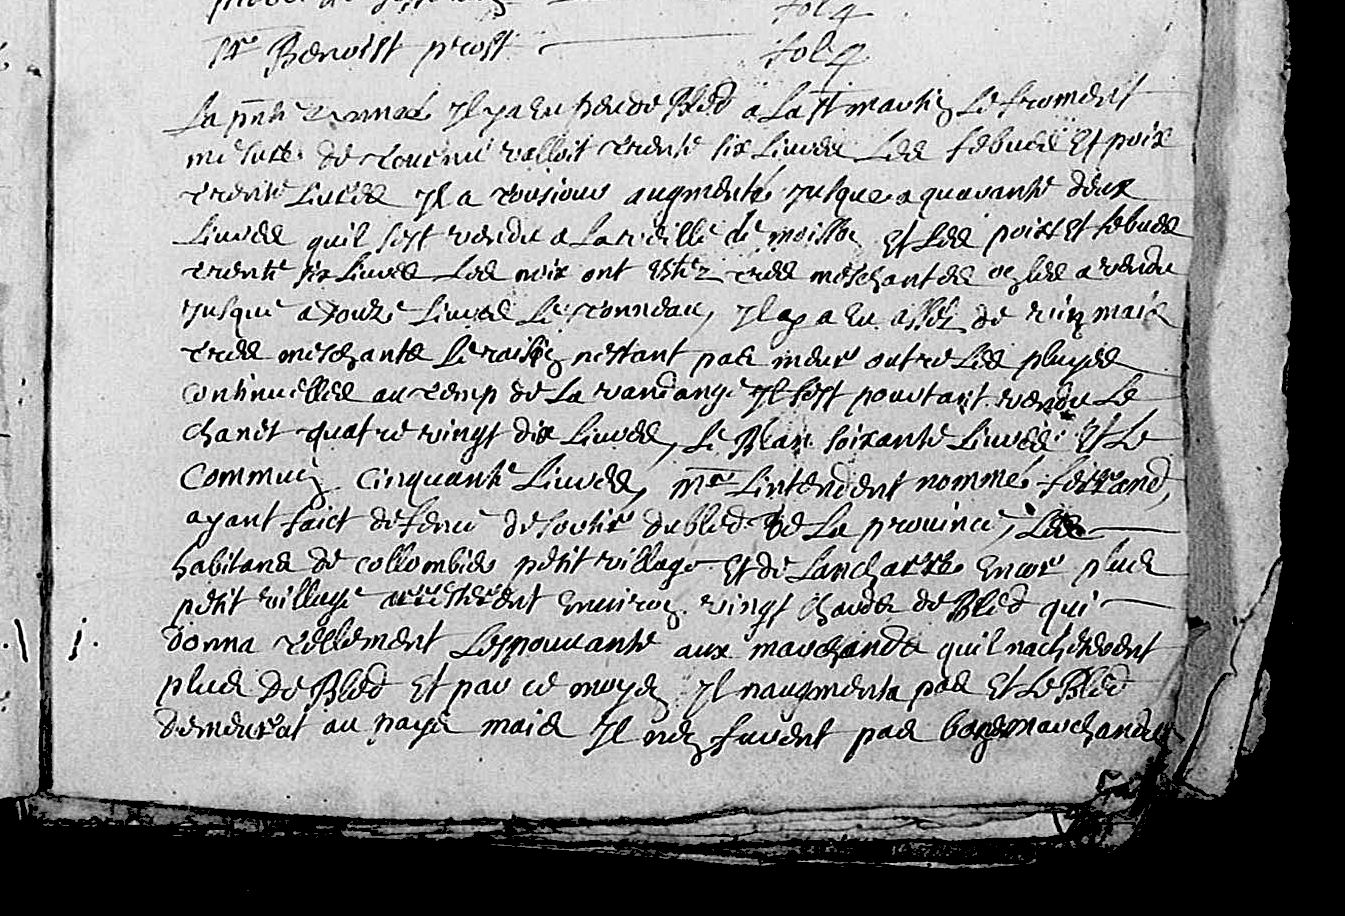 fol 4
Sr Benoist prost fol 4
La pnte année Il y a eu peu de Bled a La st martin Le froment
mesure de tournu valloit trente six Livres Les febues Et poix
trente Livres Il a tousiour augmenté Jusque a quarante deux
Livres quil sest vendu a La veille de moisson Et Les poix et febues
trente six Livres Les noix ont estez tres meschantes on les a vendu
Jusque a douze Livres Le tonneau, Il y a eu assez de vin mais
tres meschants Le raisin nestant pas meur outre Les pluyes
Continuelles au temp de La vandange Il sest pourtant vendu Le
chanet quatre vingt dix Livres, Le Blan soixante Livres Et Le
Commun cinquante Livres, mr Lintendent nommé ferrand,
ayant faict defence de sortir du bled de La prouince, Les
habitans de collombier petit village Et de Lancharre encor plus
petit village arresterent enuiron vingt chards de Bled qui
donna tellement Lespouuante aux marchands quil nacheterent
plus de Bled Et par ce moyen Il naugmenta pas Et Le Bled
demeurat au pays mais Il nen furent pas bons marchands
1.